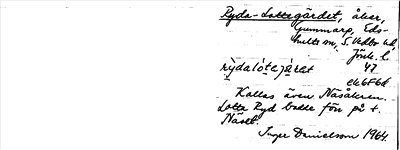 Ryda-Lottegärdet, åker,
Gummarp, Eds-
hults sn, S. Vedbo hd,
Jönk. l.
47
Kallas även Näsåkern.
Lotta Ryd hade förr på t.
Näset.
Inger Danielsson 1964.